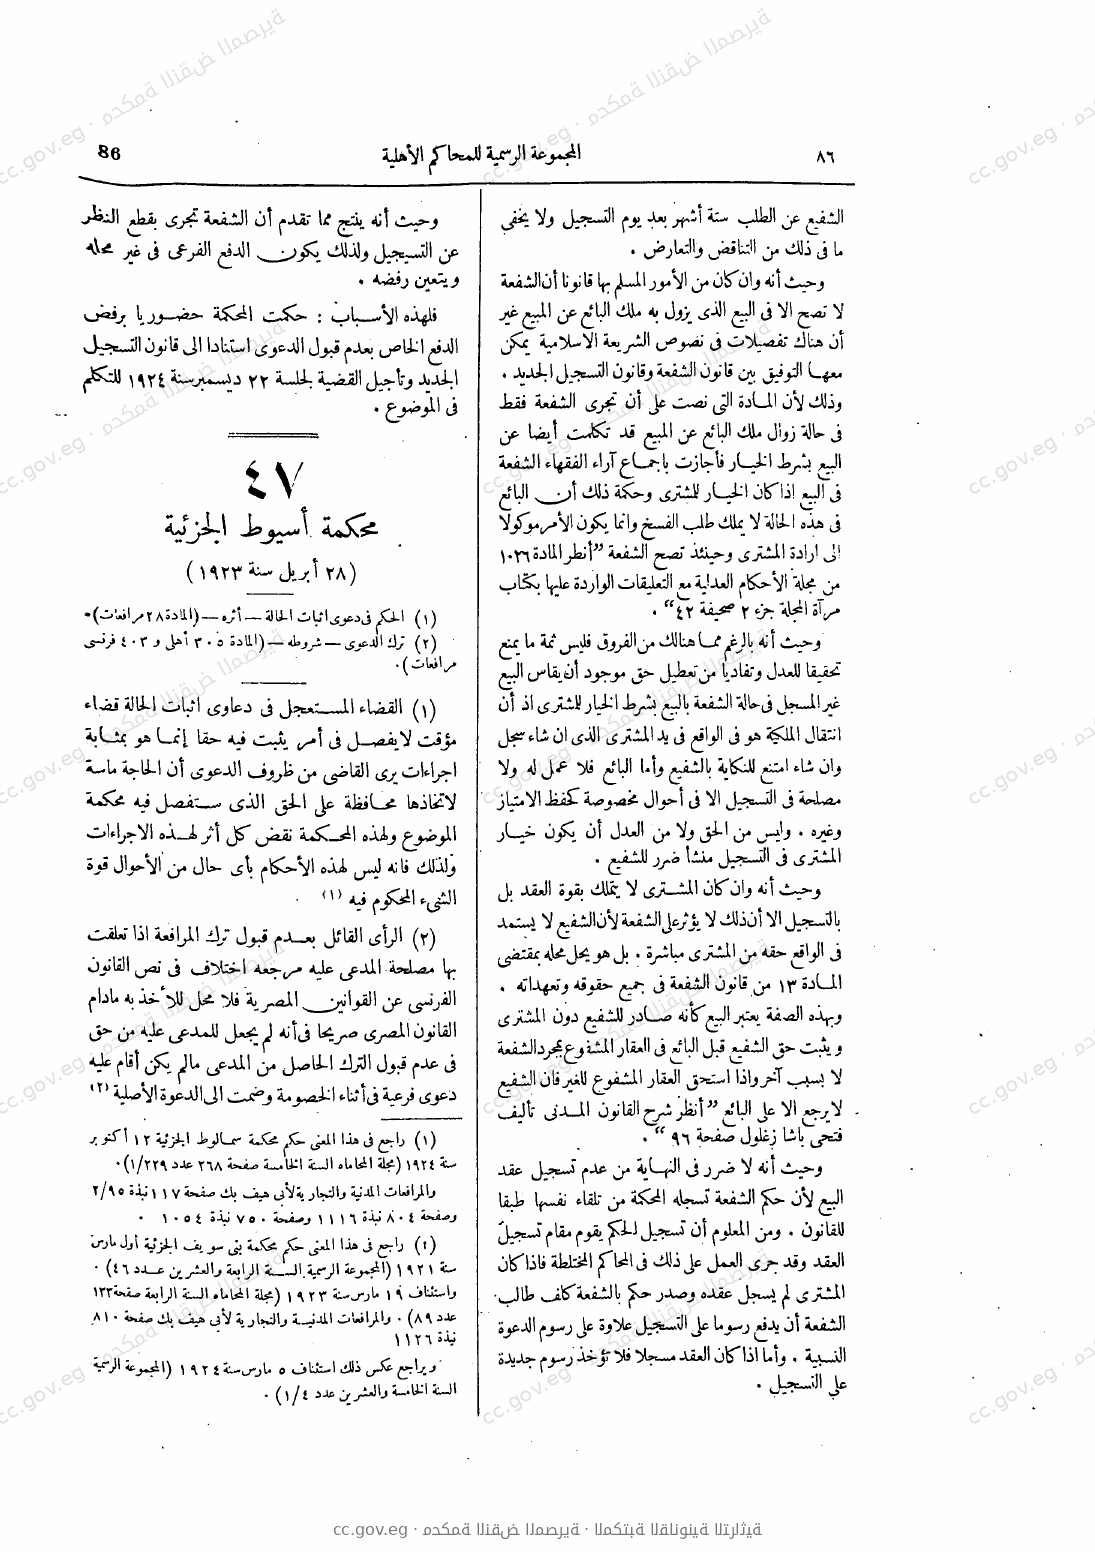 ٨٦
المجموعة الرسمية للمحاكم الأهلية
86
الشفيع عن الطلب ستة أشهر بعد يوم التسجيل ولا يخفى
ما فى ذلك من التناقض والتعارض .
وحيث أنه وان كان من الأمور المسلم بها قانونا أن الشفعة
لا تصح الا فى البيع الذى يزول به ملك البائع عن المبيع غير
أن هناك تفصيلات فى نصوص الشريعة الاسلامية يمكن
معها التوفيق بين قانون الشفعة وقانون التسجيل الجديد .
وذلك لأن المادة التى نصت على أن تجرى الشفعة فقط
فى حالة زوال ملك البائع عن المبيع قد تكلمت أيضا عن
البيع بشرط الخيار فأجازت باجماع آراء الفقهاء الشفعة
فى البيع اذا كان الخيار للمشترى وحكمة ذلك أن البائع
فى هذه الحالة لا يملك طلب الفسخ وانما يكون الأمر موكولا
الى ارادة المشترى وحينئذ تصح الشفعة "أنظر المادة ١٠٢٦
من مجلة الأحكام العدلية مع التعليقات الواردة عليها بكتاب
مرآة المجلة جزء ٢ صحيفة ٤٢" .
وحيث أنه بالرغم مما هنالك من الفروق فليس ثمة ما يمنع
تحقيقا للعدل وتفاديا من تعطيل حق موجود أن يقاس البيع
غير المسجل فى حالة الشفعة بالبيع بشرط الخيار للمشترى اذ أن
انتقال الملكية هو فى الواقع فى يد المشترى الذى ان شاء سجل
وان شاء امتنع للنكاية بالشفيع وأما البائع فلا عمل له ولا
مصلحة فى التسجيل الا فى أحوال مخصوصة كحفظ الامتياز
وغيره . وليس من الحق ولا من العدل أن يكون خيار
المشترى فى التسجيل منشأ ضرر للشفيع .
وحيث أنه وان كان المشترى لا يتملك بقوة العقد بل
بالتسجيل الا أن ذلك لا يؤثر على الشفعة لأن الشفيع لا يستمد
فى الواقع حقه من المشترى مباشرة . بل هو يحل محله بمقتضى
المادة ١٣ من قانون الشفعة فى جميع حقوقه وتعهداته .
وبهذه الصفة يعتبر البيع كأنه صادر للشفيع دون المشترى
ويثبت حق الشفيع قبل البائع فى العقار المشفوع بمجرد الشفعة
لا بسبب آخر واذا استحق العقار المشفوع للغير فان الشفيع
لا يرجع الا على البائع "أنظر شرح القانون المدنى تأليف
فتحى باشا زغلول صفحة ٩٦" .
وحيث أنه لا ضرر فى النهاية من عدم تسجيل عقد
البيع لأن حكم الشفعة تسجله المحكمة من تلقاء نفسها طبقا
للقانون . ومن المعلوم أن تسجيل الحكم يقوم مقام تسجيل
العقد وقد جرى العمل على ذلك فى المحاكم المختلطة فاذا كان
المشترى لم يسجل عقده وصدر حكم بالشفعة كلف طالب
الشفعة أن يدفع رسوما على التسجيل علاوة على رسوم الدعوة
النسبية . وأما اذا كان العقد مسجلا فلا تؤخذ رسوم جديدة
على التسجيل .
وحيث أنه ينتج مما تقدم أن الشفعة تجرى بقطع النظر
عن التسجيل ولذلك يكون الدفع الفرعى فى غير محله
ويتعين رفضه .
فلهذه الأسباب : حكمت المحكمة حضوريا برفض
الدفع الخاص بعدم قبول الدعوى استنادا الى قانون التسجيل
الجديد وتأجيل القضية لجلسة ٢٢ ديسمبر سنة ١٩٢٤ للتكلم
فى الموضوع .
٤٧
محكمة أسيوط الجزئية
(٢٨ أبريل سنة ١٩٢٣)
(١) الحكم فى دعوى اثبات الحالة – أثره – (المادة ٢٨ مرافعات).
(٢) ترك الدعوى – شروطه – (المادة ٣٠٥ أهلى و ٤٠٣ فرنسى
مرافعات).
(١) القضاء المستعجل فى دعاوى اثبات الحالة قضاء
مؤقت لا يفصل فى أمر يثبت فيه حقا إنما هو بمثابة
اجراءات يرى القاضى من ظروف الدعوى أن الحاجة ماسة
لاتخاذها محافظة على الحق الذى ستفصل فيه محكمة
الموضوع ولهذه المحكمة نقض كل أثر لهذه الاجراءات
ولذلك فانه ليس لهذه الأحكام بأى حال من الأحوال قوة
الشىء المحكوم فيه (١)
(٢) الرأى القائل بعدم قبول ترك المرافعة اذا تعلقت
بها مصلحة المدعى عليه مرجعه اختلاف فى نص القانون
الفرنسى عن القوانين المصرية فلا محل للأخذ به مادام
القانون المصرى صريحا فى أنه لم يجعل للمدعى عليه من حق
فى عدم قبول الترك الحاصل من المدعى مالم يكن أقام عليه
دعوى فرعية فى أثناء الخصومة وضمت الى الدعوة الأصلية (٢)
(١) راجع فى هذا المعنى حكم محكمة سمالوط الجزئية ١٢ أكتوبر
سنة ١٩٢٤ (مجلة المحاماه السنة الخامسة صفحة ٢٦٨ عدد ١/٢٢٩).
والمرافعات المدنية والتجارية لأبى هيف بك صفحة ١١٧ نبذة ٢/٩٥
وصفحة ٨٠٤ نبذة ١١١٦ وصفحة ٧٥٠ نبذة ١٠٥٤ .
(٢) راجع فى هذا المعنى حكم محكمة بنى سويف الجزئية أول مارس
سنة ١٩٢١ (المجموعة الرسمية السنة الرابعة والعشرين عدد ٤٦) .
واستئناف ١٩ مارس سنة ١٩٢٣ (مجلة المحاماه السنة الرابعة صفحة ١٣٣
عدد ٨٩) . والمرافعات المدنية والتجارية لأبى هيف بك صفحة ٨١٠
نبذة ١١٢٦
ويراجع عكس ذلك استئناف ٥ مارس سنة ١٩٢٤ (المجموعة الرسمية
السنة الخامسة والعشرين عدد ١/٤) .
cc.gov.eg · محكمة النقض المصرية · المكتبة القانونية التراثية